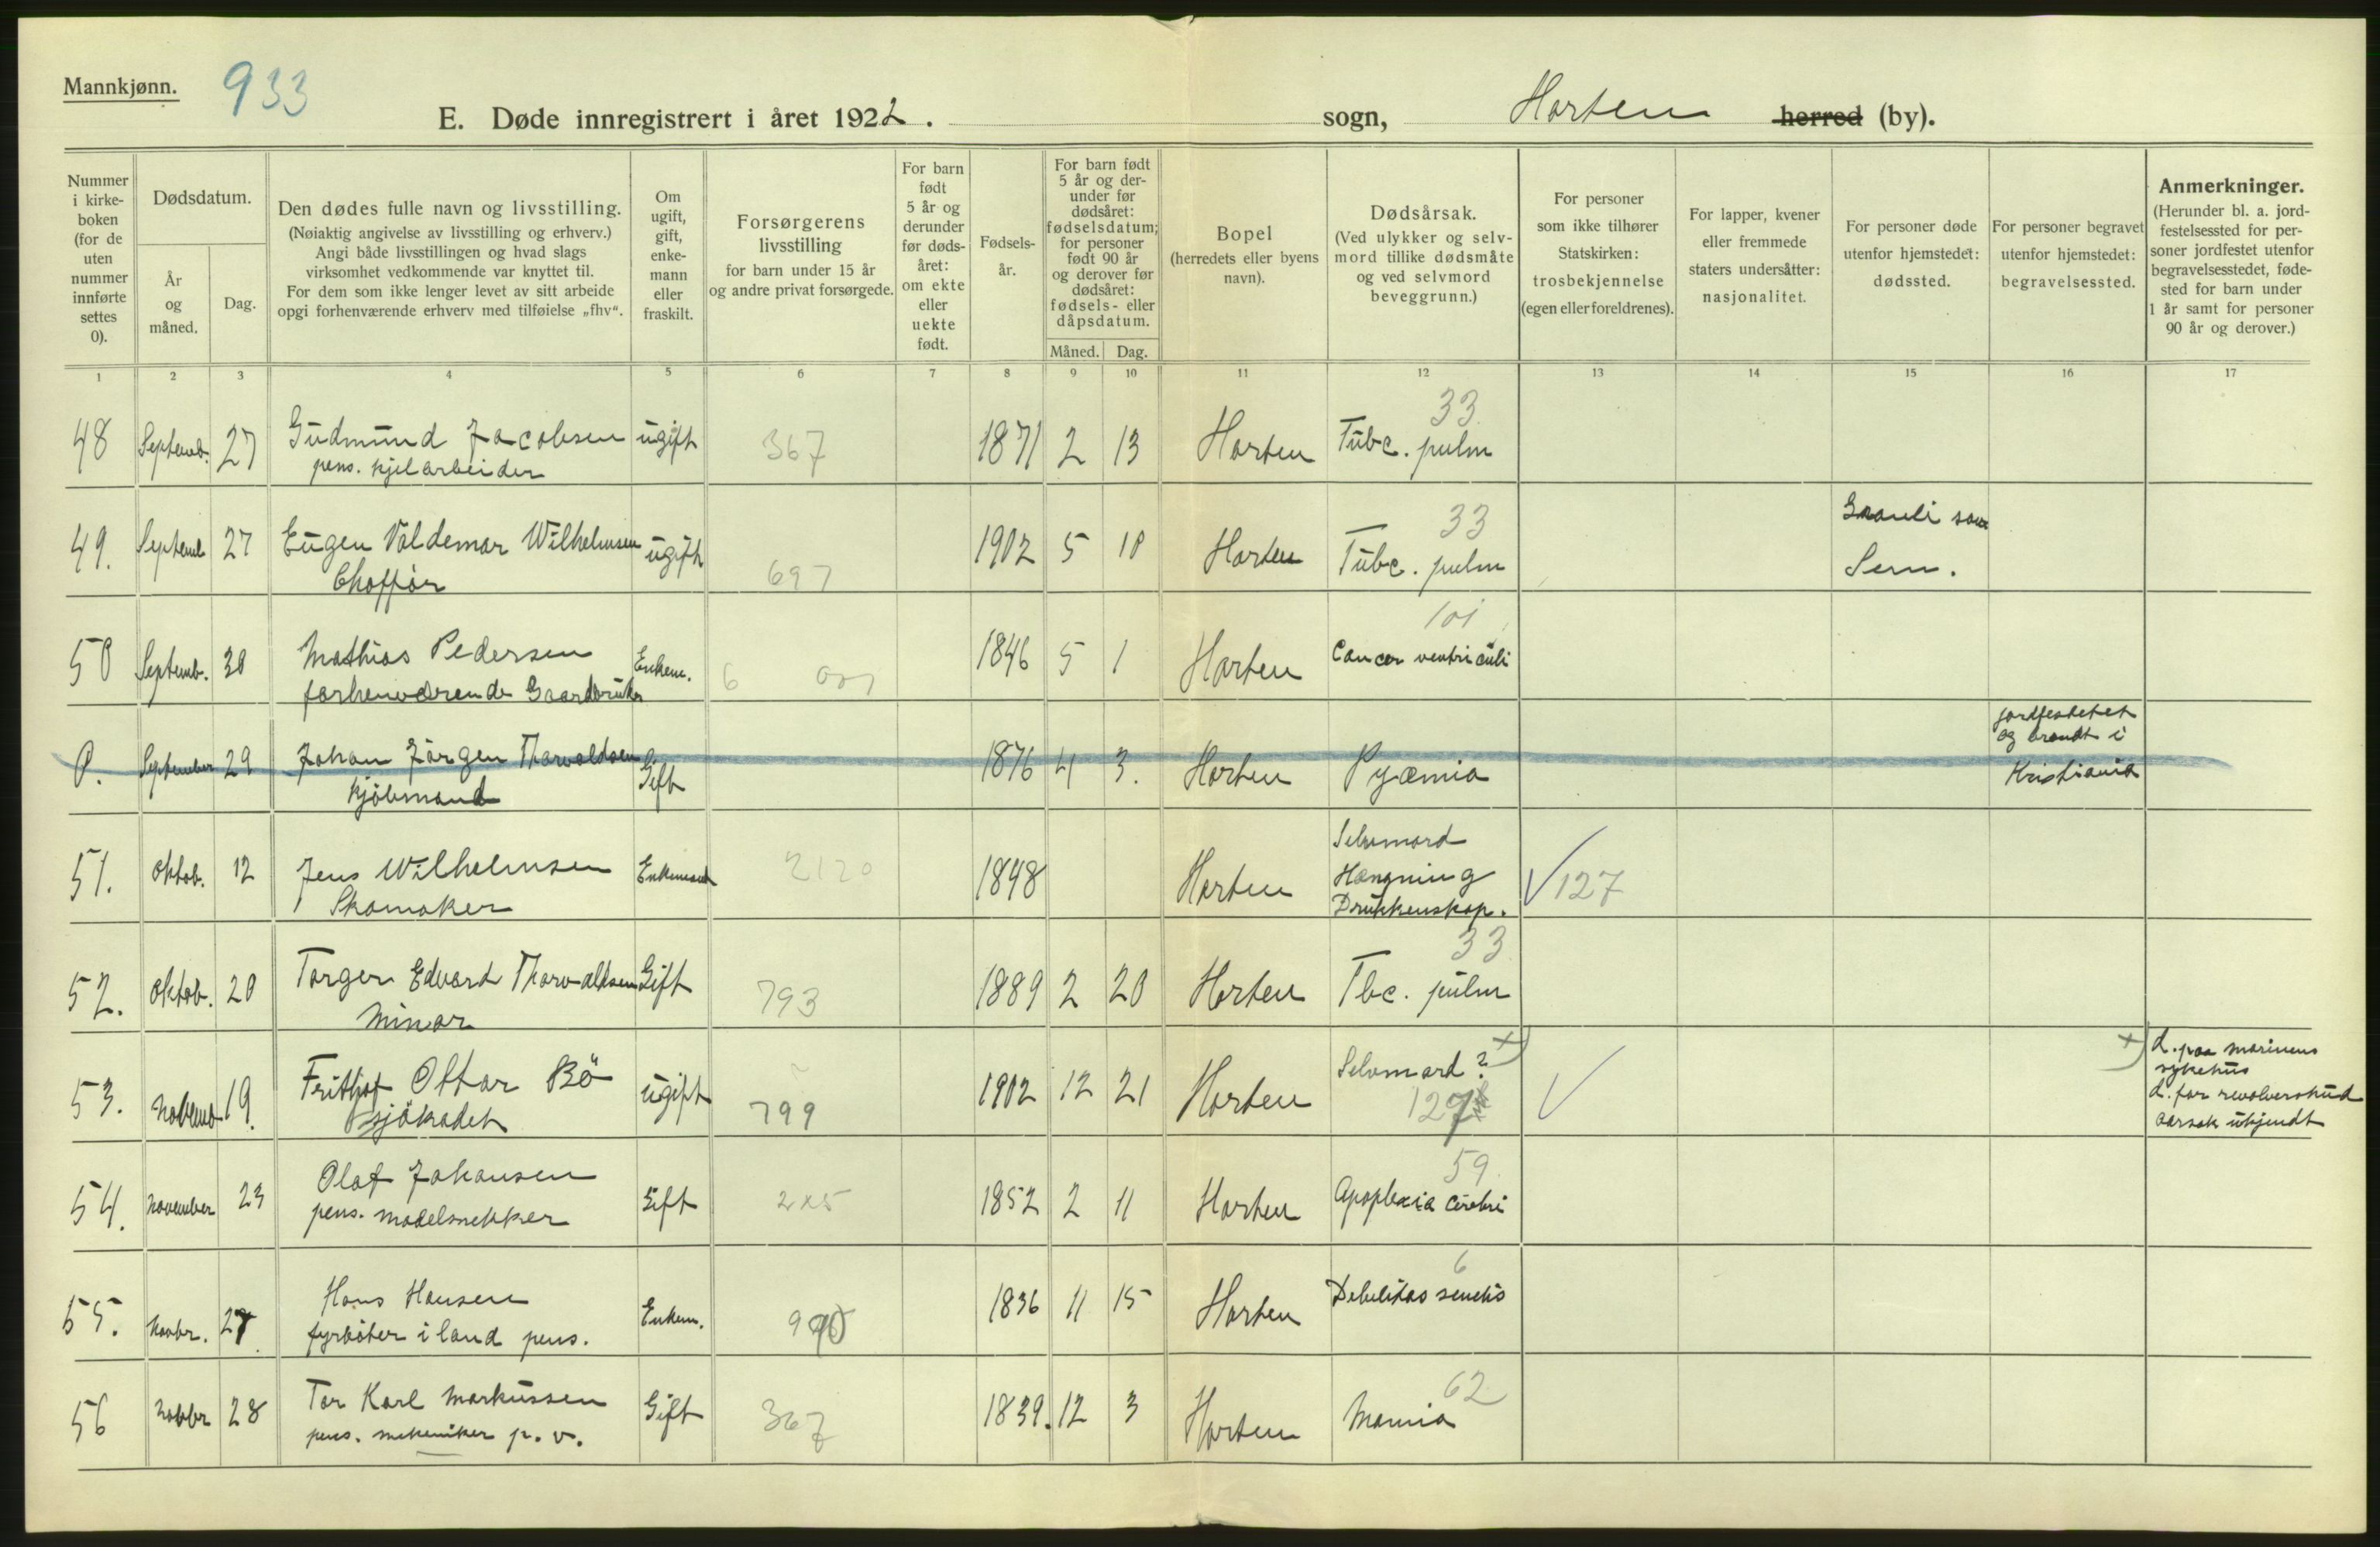 Mannkjønn.
933
E. Døde innregistrert i året 1922. sogn, Horten herred (by).
Nummer i kirke-boken (for de uten nummer innførte settes 0).
Dødsdatum.
År og måned.
Dag.
Den dødes fulle navn og livsstilling.
(Nøiaktig angivelse av livsstilling og erhverv.)
Angi både livsstillingen og hvad slags
virksomhet vedkommende var knyttet til.
For dem som ikke lenger levet av sitt arbeide
opgi forhenværende erhverv med tilføielse „fhv“.
Om ugift, gift, enke-mann eller fraskilt.
Forsørgerens livsstilling
for barn under 15 år
og andre privat forsørgede.
For barn født 5 år og derunder før døds-året: om ekte eller uekte født.
Fødsels-år.
For barn født 5 år og der-under før dødsåret: fødselsdatum; for personer født 90 år og derover før dødsåret: fødsels- eller dåpsdatum.
Måned.
Dag.
Bopel
(herredets eller byens navn).
Dødsårsak.
(Ved ulykker og selv-mord tillike dødsmåte og ved selvmord beveggrunn.)
For personer som ikke tilhører Statskirken: trosbekjennelse (egen eller foreldrenes).
For lapper, kvener eller fremmede staters undersåtter: nasjonalitet.
For personer døde utenfor hjemstedet: dødssted.
For personer begravet utenfor hjemstedet: begravelsessted.
Anmerkninger.
(Herunder bl. a. jord-festelsessted for per-soner jordfestet utenfor begravelsesstedet, føde-sted for barn under 1 år samt for personer 90 år og derover.)
1 2 3 4 5 6 7 8 9 10 11 12 13 14 15 16 17
33
48 Septemb. 27 Gudmund Jacobsen ugift 367 1871 2 13 Horten Tubc. pulm
pens. kjelarbeider
33
49. Septemb 27 Eugen Valdemar Wilhelmsen ugift 697 1902 5 10 Horten Tubc. pulm
Choffør
Sem.
101
50 Septemb. 30 Mathias Pedersen Enkem. 6 1846 5 1 Horten Cancer ventriculi
forhenværende Gaardbruker
0. September 29 Johan Jörgen Thorvaldsen Gift 1876 4 3. Horten Pyæmia
kjöbmand
jordfestetet
og brændt i
Kristiania
51. Oktob. 12 Jens Wilhelmsen Enkemand 2120 1848 Horten Selvmord
Skomaker
Hængning
Drukkenskap.
✓ 127
33
52. Oktob. 20 Torger Edvard Thorvaldsen Gift 793 1889 2 20 Horten Tbc. pulm
Minör
53. Novemb 19. Frithjof Ottar Bö ugift 799 1902 12 21 Horten Selvmord? +)
sjökadet
127
✓
+) d. paa marinens
sykehus
d. for revolverskud
aarsak ukjendt
59.
54. November 23 Olaf Johansen Gift 2x5 1852 2 11 Horten Apoplexia Cerebri
pens. modelsnekker
6
55. Novbr. 27. Hans Hansen Enkem. 990 1836 11 15 Horten Debilitas senilis
fyrböter i land pens.
62
56 Novbr 28 Tor Karl Markussen Gift 367 1839. 12 3 Horten Mania
pens. mekeniker p. v.